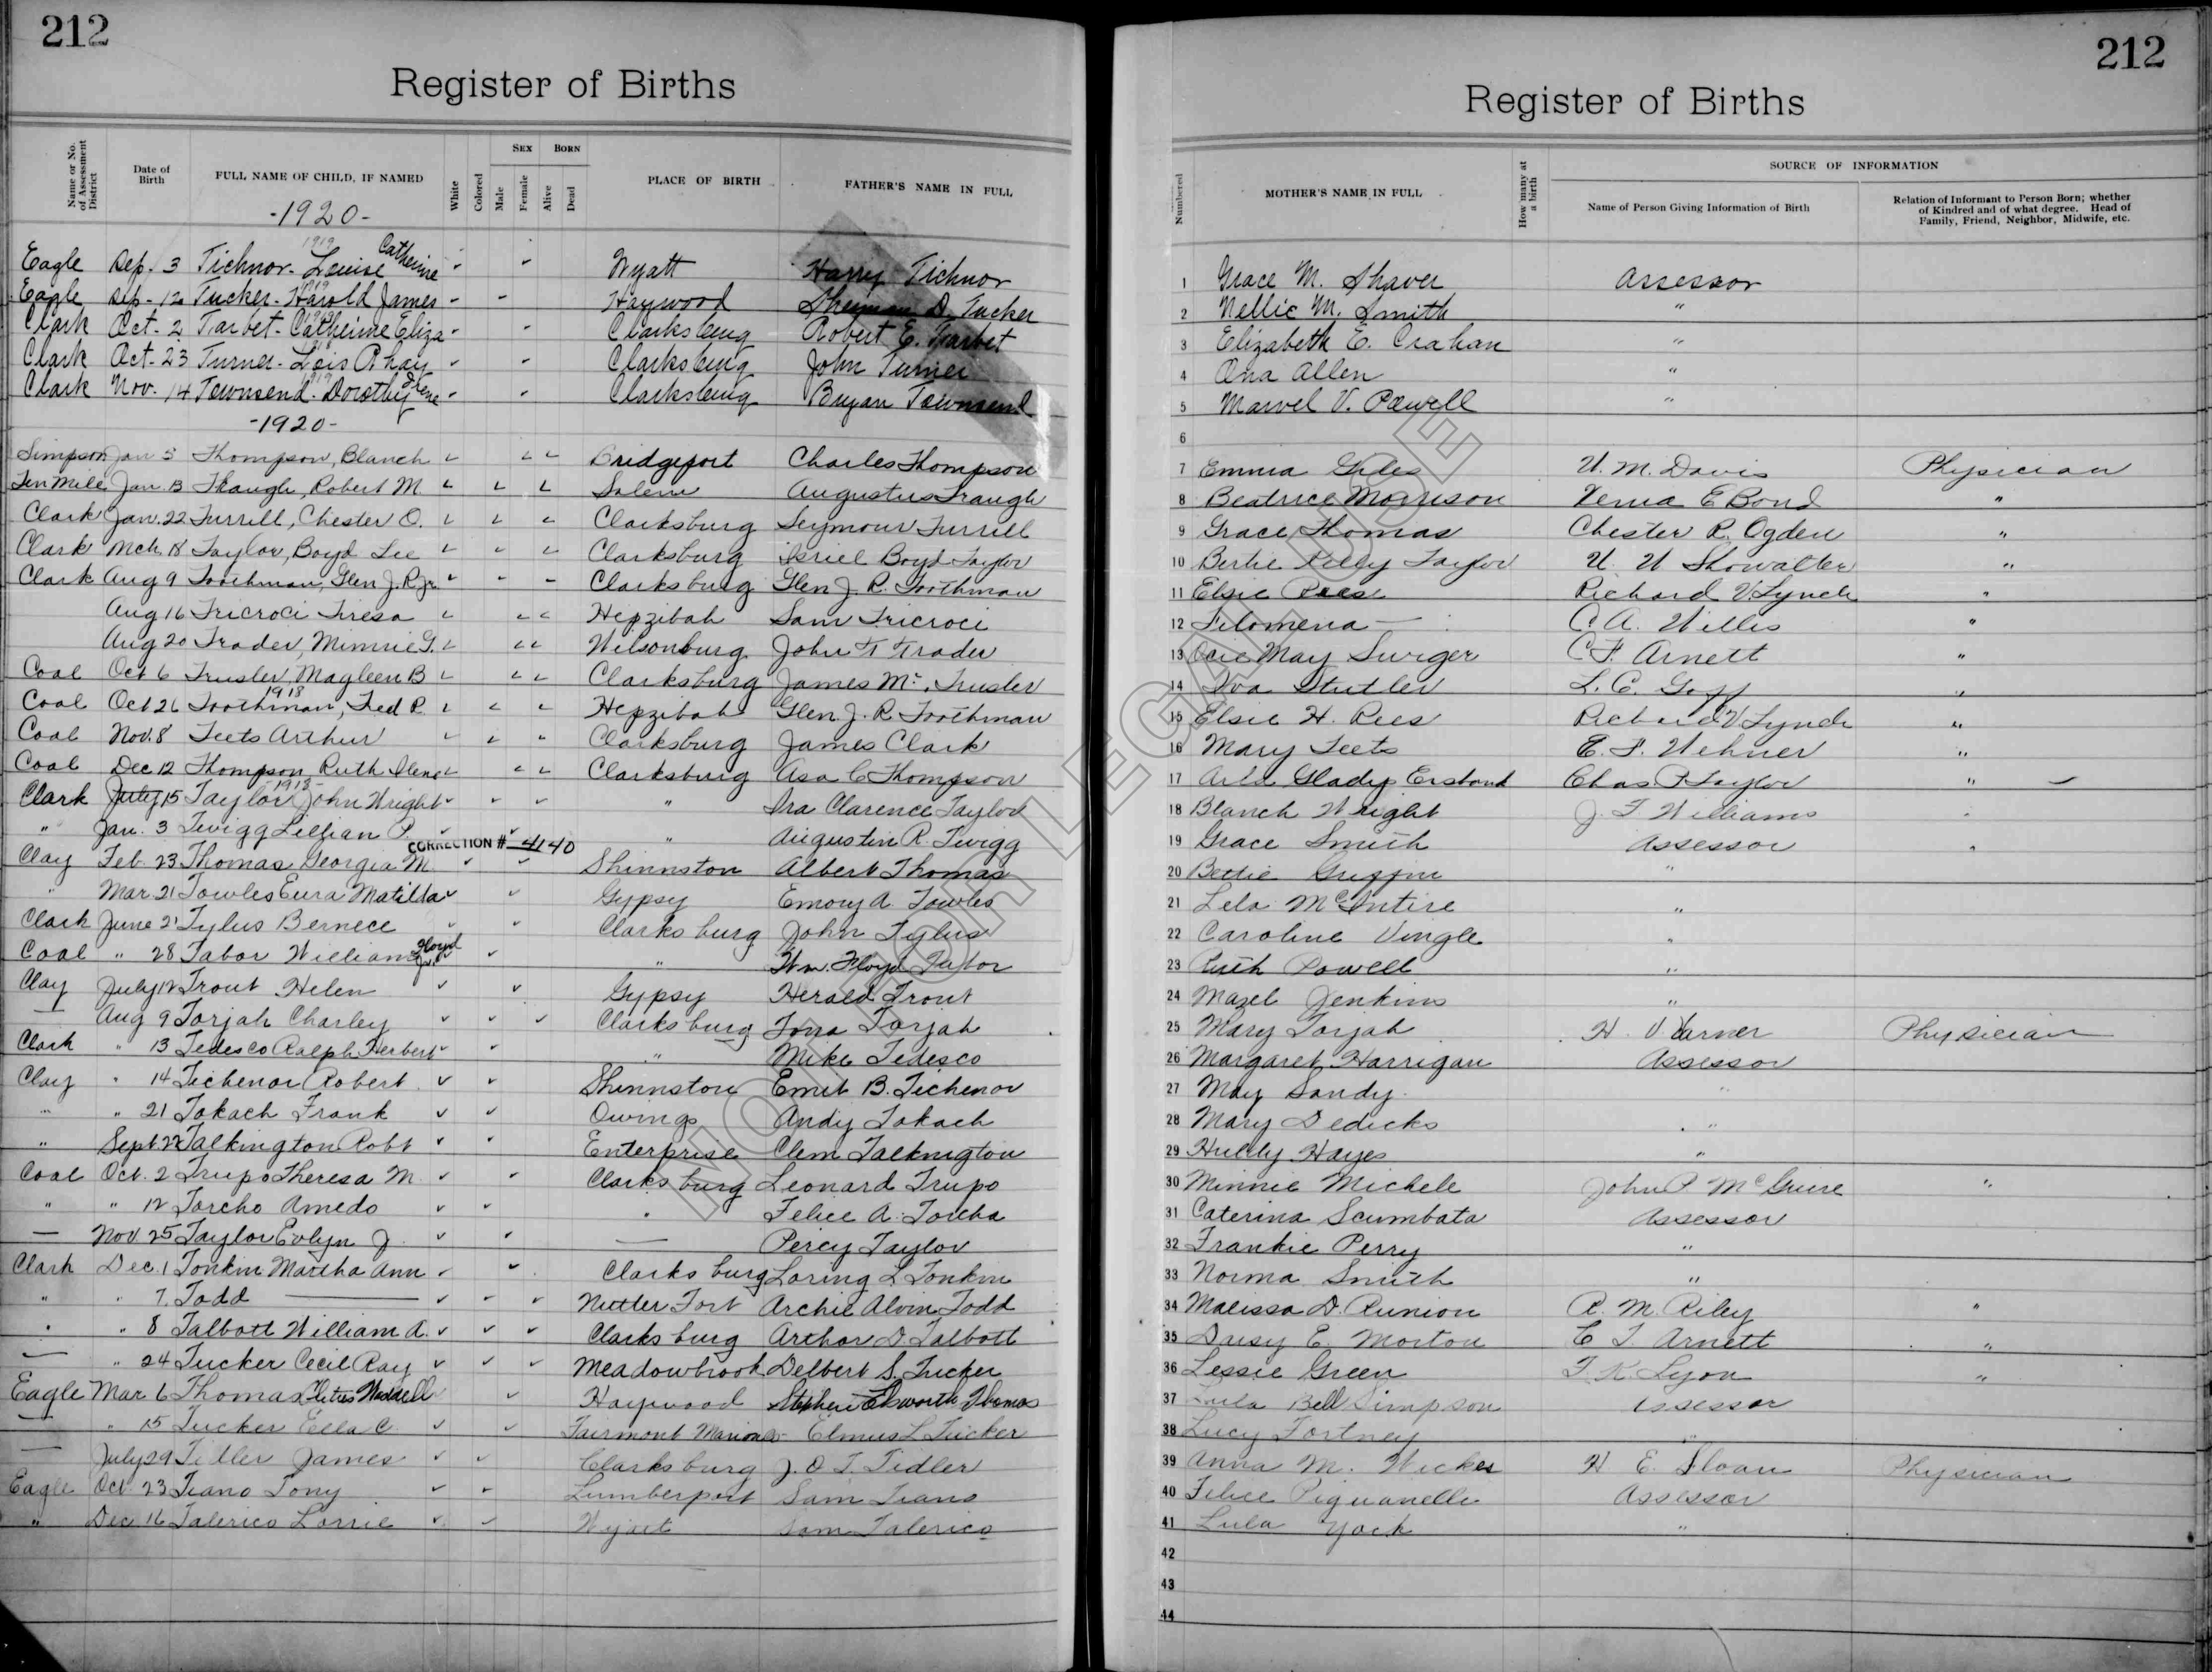 212
Register of Births
Name or No. of Assessment District
Date of Birth
FULL NAME OF CHILD, IF NAMED
White
Colored
SEX
Male
Female
BORN
Alive
Dead
PLACE OF BIRTH
FATHER'S NAME IN FULL
-1920-
Eagle Sep. 3 Tichnor- Louise Catherine 1919 Wyatt Harry Tichnor
Eagle Sep- 12 Tucker- Harold James 1919 Haywood Sherman D. Tucker
Clark Oct- 2 Tarbet- Catherine Eliza 1919 Clarksburg Robert E. Tarbet
Clark Oct- 23 Turner- Lois Phay Clarksburg John Turner
Clark Nov. 14 Townsend- Dorothy Irene 1919 Clarksburg Bryan Townsend
-1920-
Simpson Jan 5 Thompson, Blanch Bridgeport Charles Thompson
Ten Mile Jan. 13 Traugh, Robert M. Salem Augustus Traugh
Clark Jan. 22 Turrill, Chester O. Clarksburg Seymour Turrill
Clark Mch 18 Taylor, Boyd Lee Clarksburg Isriel Boyd Taylor
Clark Aug 9 Toothman, Glen J. R. Jr. Clarksburg Glen J. R. Toothman
Aug 16 Tricroci Tiresa Hepzibah Sam Tricroci
Aug 20 Trader, Minnie G. Wilsonburg John F Trader
Coal Oct 6 Trusler, Mayleen B Clarksburg James Mc. Trusler
Coal Oct 26 Toothman, Fred R. 1918 Hepzibah Glen. J. R Toothman
Coal Nov. 8 Teets Arthur Clarksburg James Clark
Coal Dec 12 Thompson, Ruth Ilene Clarksburg Asa C Thompson
Clark July 15 Taylor John Wright -1918- " Ira Clarence Taylor
" Jan. 3 Twigg Lillian P. " Augustin R. Twigg
CORRECTION # 4140
Clay Feb. 23 Thomas Georgia M. Shinnston Albert Thomas
" Mar. 21 Towles Eura Matilda Gypsy Emory A. Towles
Clark June 21 Tylus Bernece Clarksburg John Tylus
Coal " 28 Tabor William Floyd Jr. " Wm. Floyd Tabor
Clay July 12 Trout Helen Gypsy Herald Trout
— Aug 9 Torjah Charley Clarksburg Torjah
Clark " 13 Tedesco Ralph Herbert " Mike Tedesco
Clay " 14 Tichenor Robert Shinnston Emit B. Tichenor
" " 21 Takach Frank Owings Andy Takach
" Sept 22 Talkington Robt Enterprise Clem Talkington
Coal Oct. 2 Trupo Theresa M. Clarksburg Leonard Trupo
" " 12 Torcho Amedo " Felice A. Torcha
— Nov 25 Taylor Evlyn J. — Percy Taylor
Clark Dec. 1 Tonkin Martha Ann Clarksburg Loring L Tonkin
" " 7. Todd — Nutter Fort Archie Alvin Todd
" " 8 Talbott William A. Clarksburg Arthor D. Talbott
— " 24 Tucker Cecil Ray Meadowbrook Delbert S. Tucker
Eagle Mar 6 Thomas Cletus Waddell Haywood Stephen Elsworth Thomas
— " 15 Tucker Ella C. Fairmont Marion Co Elmus L Tucker
— July 29 James Clarksburg J. O. T. Tidler
Eagle Oct 23 Tiano Tony Lumberport Sam Tiano
" Dec 16 Talerico Lorrie Wyatt Sam Talerico
212
Register of Births
Numbered
MOTHER'S NAME IN FULL
How many at a birth
SOURCE OF INFORMATION
Name of Person Giving Information of Birth
Relation of Informant to Person Born; whether of Kindred and of what degree. Head of Family, Friend, Neighbor, Midwife, etc.
1 Grace M. Shaver Assessor
2 Nellie M. Smith "
3 Elizabeth E. Crahan "
4 Ona Allen "
5 Marvel V. Powell "
6
7 Emma Giles U. M. Davis Physician
8 Beatrice Morrison Venia E Bond "
9 Grace Thomas Chester R. Ogden "
10 Bertie Riley Taylor U. U Showalter "
11 Elsie Rees Richard V. Lynch "
12 Filomena — C. A. Willis "
13 Ocie May Swiger C. F. Arnett "
14 Iva Stutler L. C. Goff "
15 Elsie H. Rees Richard V Lynch "
16 Mary Teets E. F. Wehner "
17 Arla Gladys Ersbank Chas P Taylor "
18 Blanch Wright J. T Williams "
19 Grace Smith Assessor "
20 Bettie Griffin "
21 Lela McIntire "
22 Caroline Vingle "
23 Ruth Powell "
24 Mazel Jenkins "
25 Mary Torjah H. V. Varner Physician
26 Margaret Harrigan Assessor
27 May Sandy "
28 Mary Dedicks "
29 Hulty Hayes "
30 Minnie Michele John P McGuire "
31 Caterina Scumbata Assessor
32 Frankie Perry "
33 Norma Smith "
34 Malissa D. Runion R. M. Riley "
35 Daisy E. Morton C. F. Arnett "
36 Lessie Green F. K. Lyon "
37 Lula Bell Simpson Assessor
38 Lucy Fortney "
39 Anna M. Wickes H E. Sloan Physician
40 Felice Piquanelli Assessor
41 Lula York "
42
43
44
NOT FOR LEGAL USE